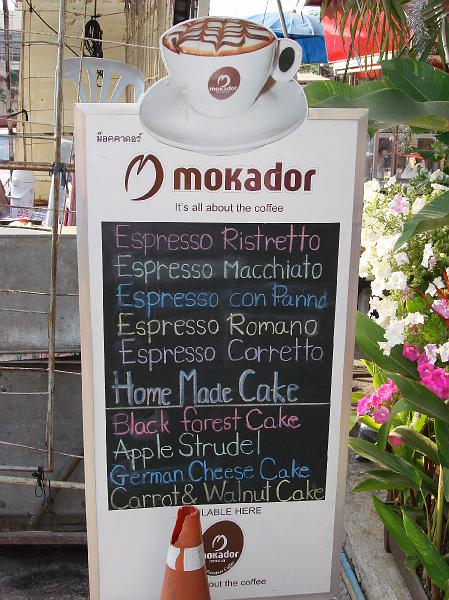 mokador
ม็อคคาดอร์
mokador
It's all about the coffee
Espresso Ristretto
Espresso Macchiato
Espresso con Panna
Espresso Romano
Espresso Corretto
Home Made Cake
Black forest Cake
Apple Strudel
German Cheese Cake
Carrot & Walnut Cake
ILABLE HERE
mokador
out the coffee